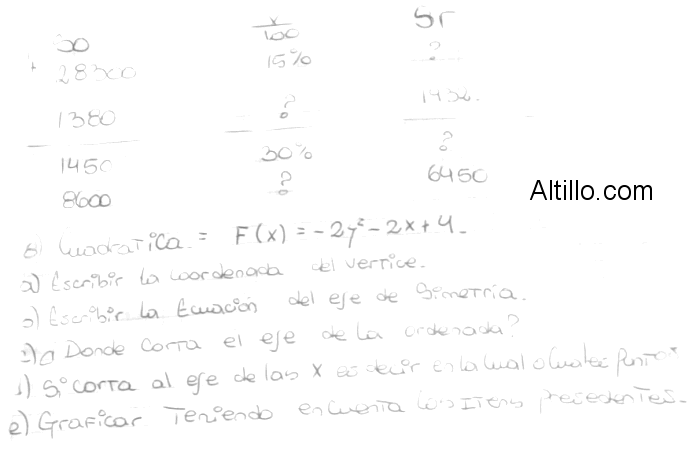 So x/100 Sr
28300 15% ?
1380 ? 1932.
1450 30% ?
8600 ? 6450
Altillo.com
6) Cuadratica = F(x) = -2x² - 2x + 4.
a) Escribir la coordenada del vertice.
b) Escribir la Ecuación del eje de Simetría.
c) Donde corta el eje de la ordenada?
d) Si corta al eje de las x es decir en la cual o cuales puntos
e) Graficar Teniendo en cuenta los Items precedentes.